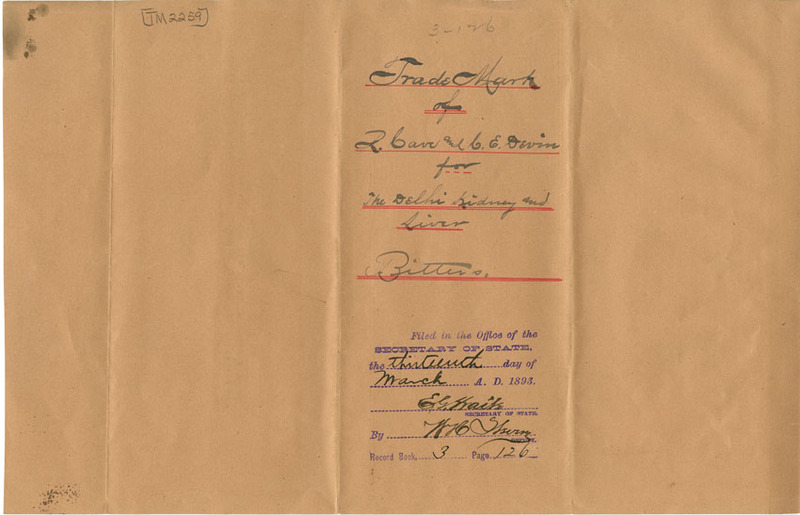 [TM2259]
3-126
Trade Mark
of
L. Cave and C. E. Devin
for
The Delhi Kidney and
Liver
Bitters.
Filed in the Office of the
SECRETARY OF STATE,
the thirteenth day of
March A. D. 1893.
E. G. Waite
SECRETARY OF STATE.
By W H
DEPUTY.
Record Book 3 Page 126